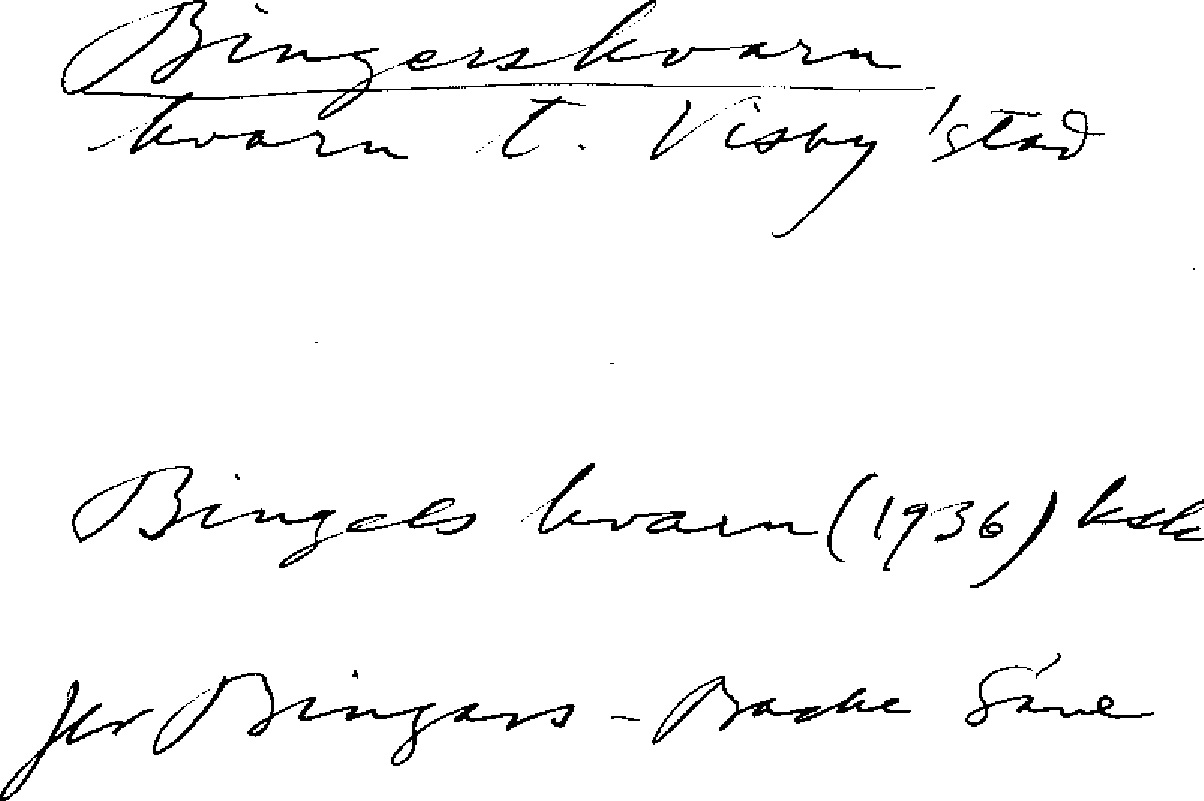 Bingerskvarn
kvarn t. Visby stad
Bingels kvarn (1936) ksk
Jfr Bingars - Backe Säve